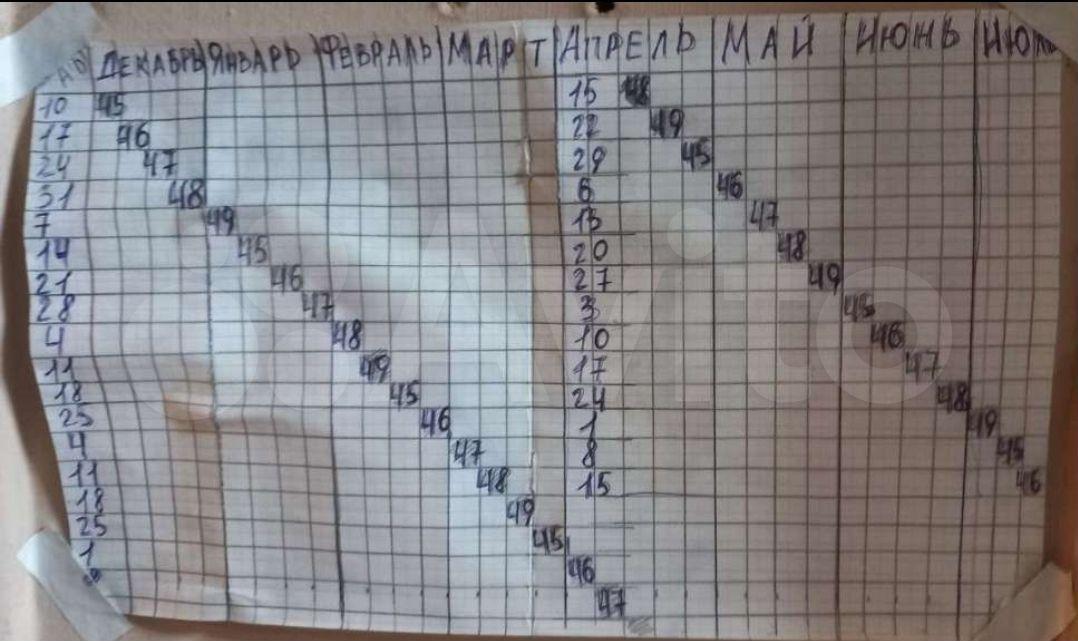 ДЕКАБРЬ ЯНВАРЬ ФЕВРАЛЬ МАРТ АПРЕЛЬ МАЙ ИЮНЬ ИЮЛЬ
10 45 15 48
17 46 22 49
24 47 29 45
31 48 6 46
7 49 13 47
14 45 20 48
21 46 27 49
28 47 3 45
4 48 10 46
11 49 17 47
18 45 24 48
25 46 1 49
4 47 8 45
11 48 15 46
18 49
25 45
1 46
8 47
Avito